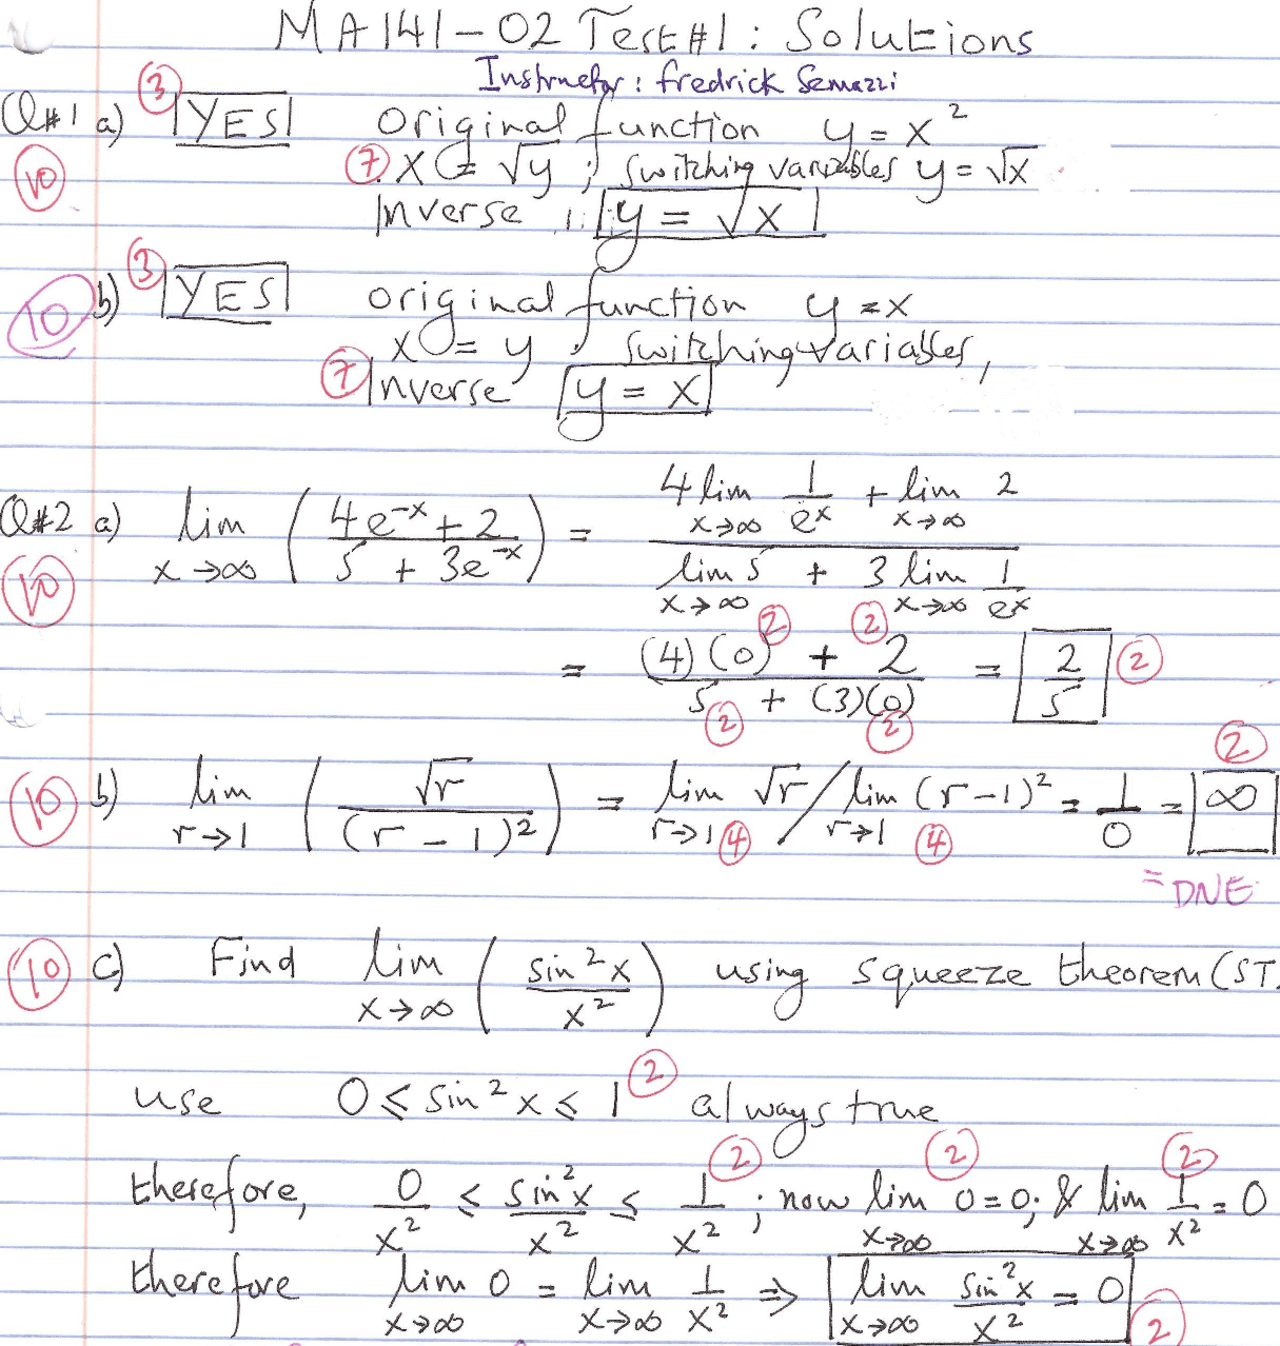 MA141-02 Test#1: Solutions
Instructor: Fredrick Semazzi
Q#1 a) ③ YES Original function y = x²
⑩ ⑦ x = √y ; switching variables y = √x
Inverse y = √x
b) ③ YES original function y = x
⑩ x = y ; switching variables,
⑦ Inverse y = x
Q#2 a) lim x→∞ ( (4e^-x + 2) / (5 + 3e^-x) ) = (4 lim x→∞ 1/e^x + lim x→∞ 2) / (lim x→∞ 5 + 3 lim x→∞ 1/e^x)
⑩ = ((4)(0) ② + 2 ②) / (5 ② + (3)(0) ②) = 2/5 ②
⑩ b) lim r→1 ( √r / (r - 1)² ) = lim r→1 √r ④ / lim r→1 (r-1)² ④ = 1/0 = ∞ ②
= DNE
⑩ c) Find lim x→∞ ( sin²x / x² ) using squeeze theorem (ST.
use 0 ≤ sin²x ≤ 1 ② always true
therefore, 0/x² ≤ sin²x/x² ≤ 1/x² ② ; now lim x→∞ 0 = 0 ②; & lim x→∞ 1/x² = 0 ②
therefore lim x→∞ 0 = lim x→∞ 1/x² ⇒ lim x→∞ sin²x/x² = 0 ②